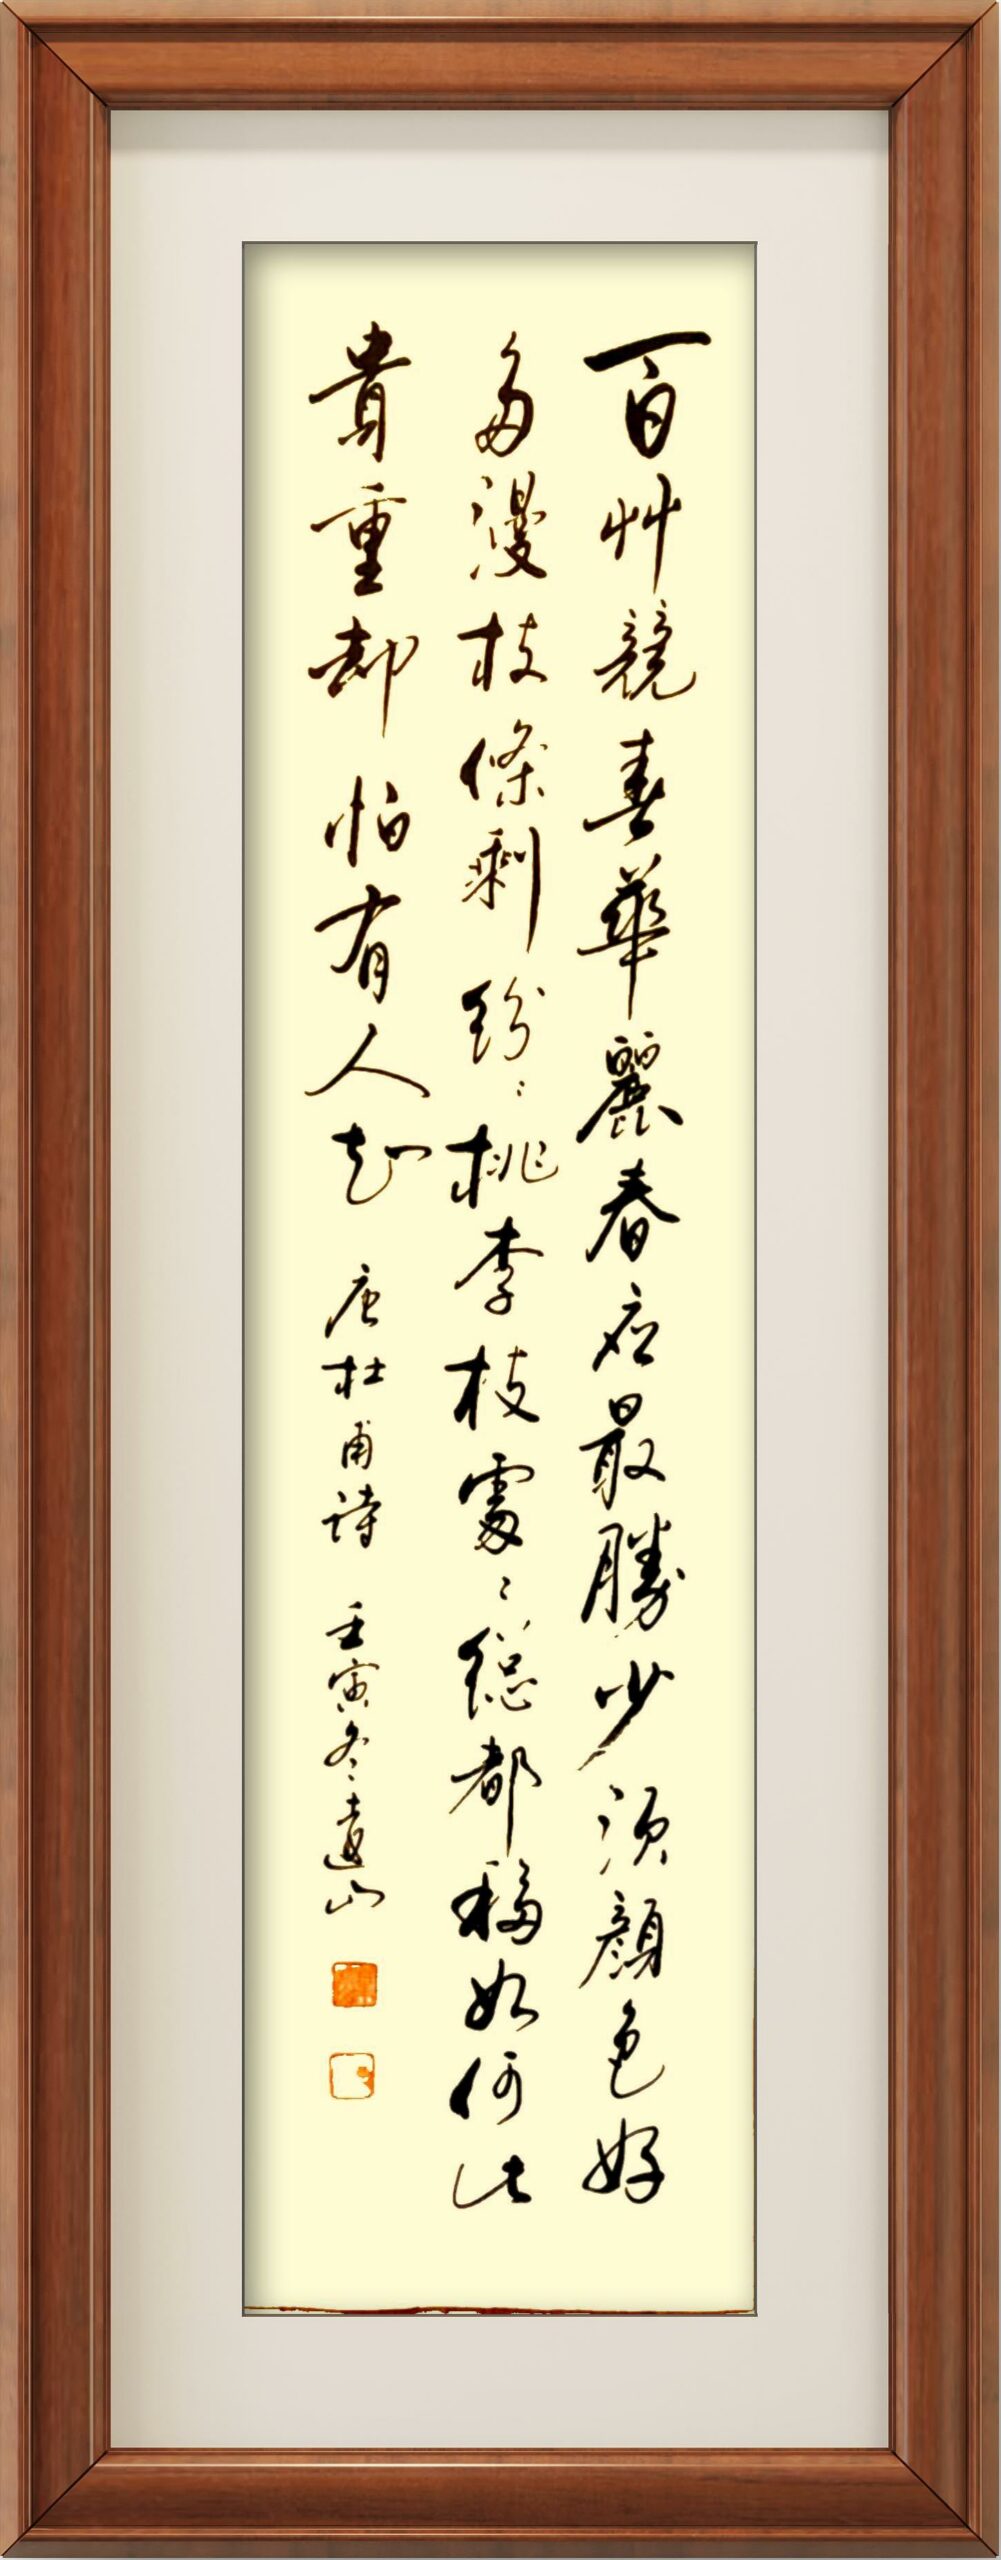 百艸競春華麗春应最勝少須顏色好
多漫枝條剩紛〻桃李枝處〻總都移如何此
貴重却怕有人知 唐杜甫詩 壬寅冬遠山